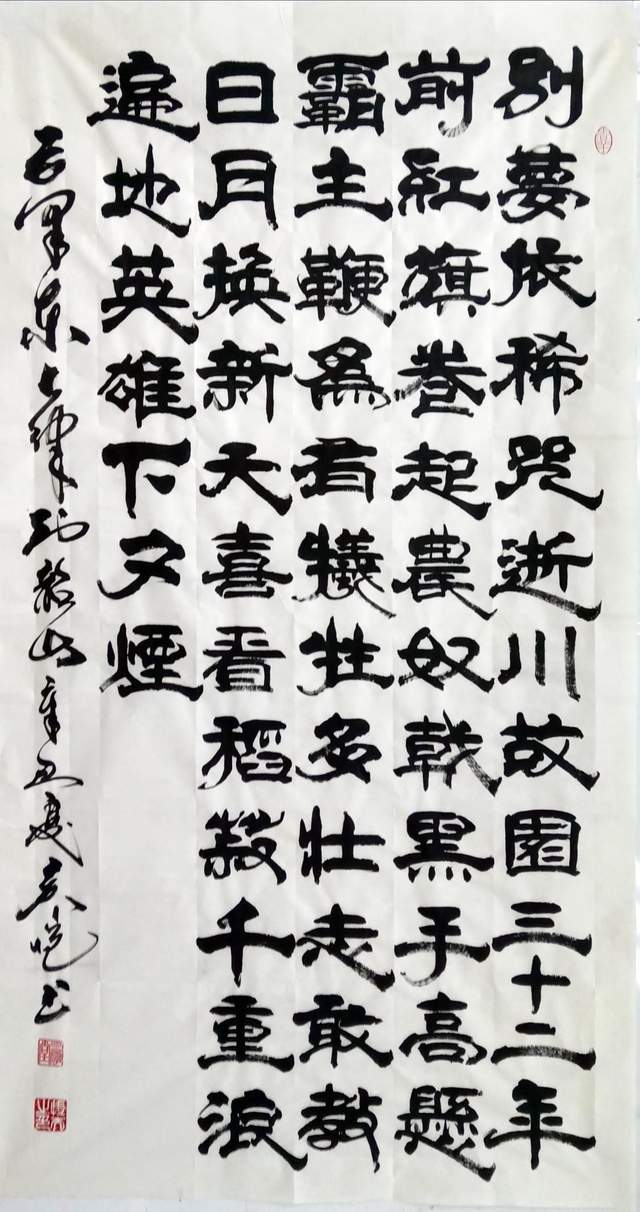 别夢依稀咒逝川故園三十二年
前紅旗卷起農奴戟黑手高懸
霸主鞭為有犧牲多壯志敢教
日月換新天喜看稻菽千重浪
遍地英雄下夕煙
毛澤東七律到韶山辛丑歲書